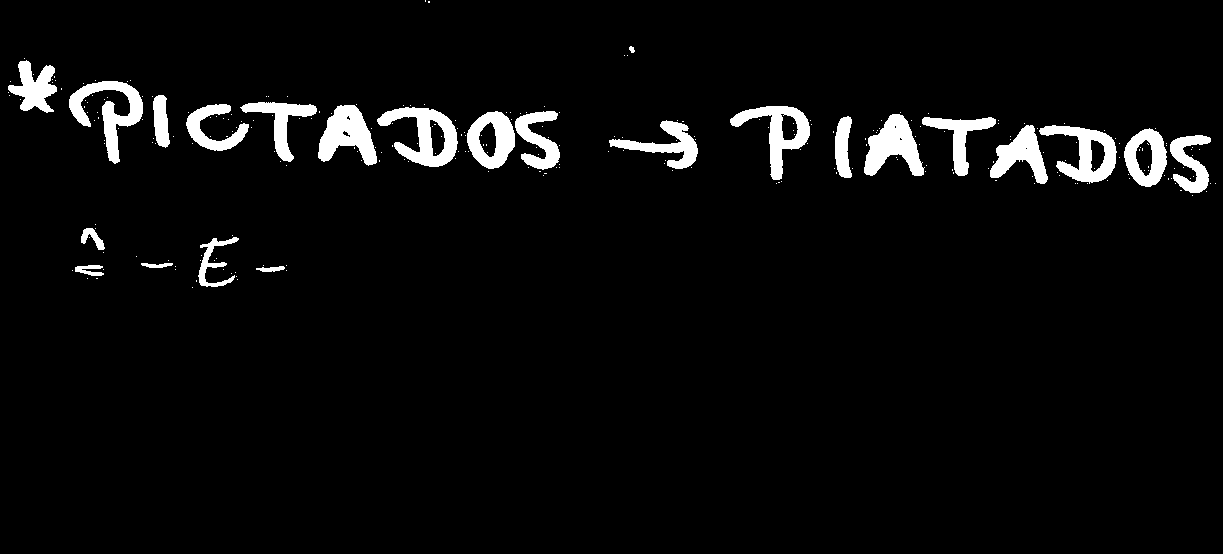 *PICTADOS → PIATADOS
≙ - E -